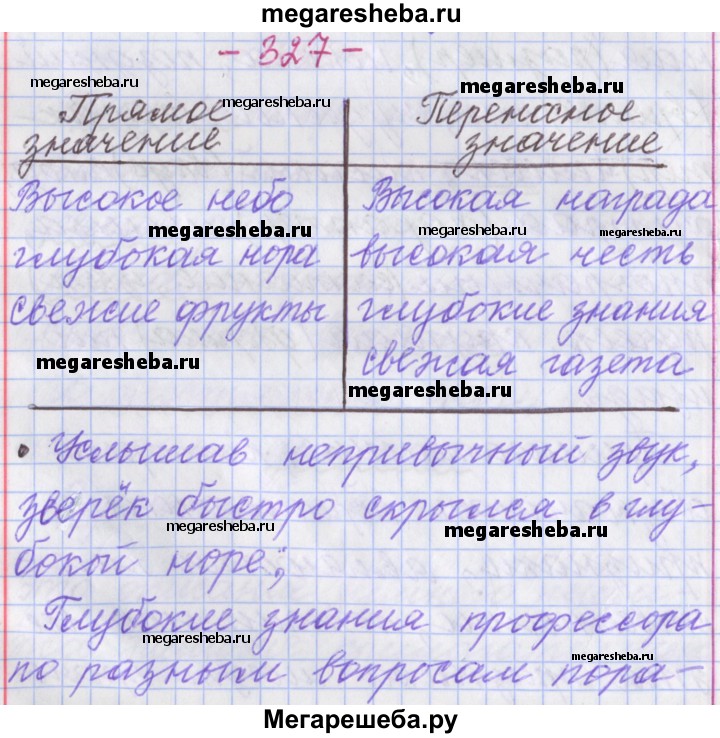 megaresheba.ru
- 327 -
megaresheba.ru
megaresheba.ru
megaresheba.ru
Прямое значение
Переносное значение
Высокое небо
Высокая награда
megaresheba.ru
megaresheba.ru
megaresheba.ru
глубокая нора
высокая честь
свежие фрукты
глубокие знания
megaresheba.ru
свежая газета
megaresheba.ru
• Услышав непривычный звук,
зверёк быстро скрылся в глу-
megaresheba.ru
megaresheba.ru
бокой норе;
Глубокие знания профессора
megaresheba.ru
megaresheba.ru
по разным вопросам пора-
Мегарешеба.ру